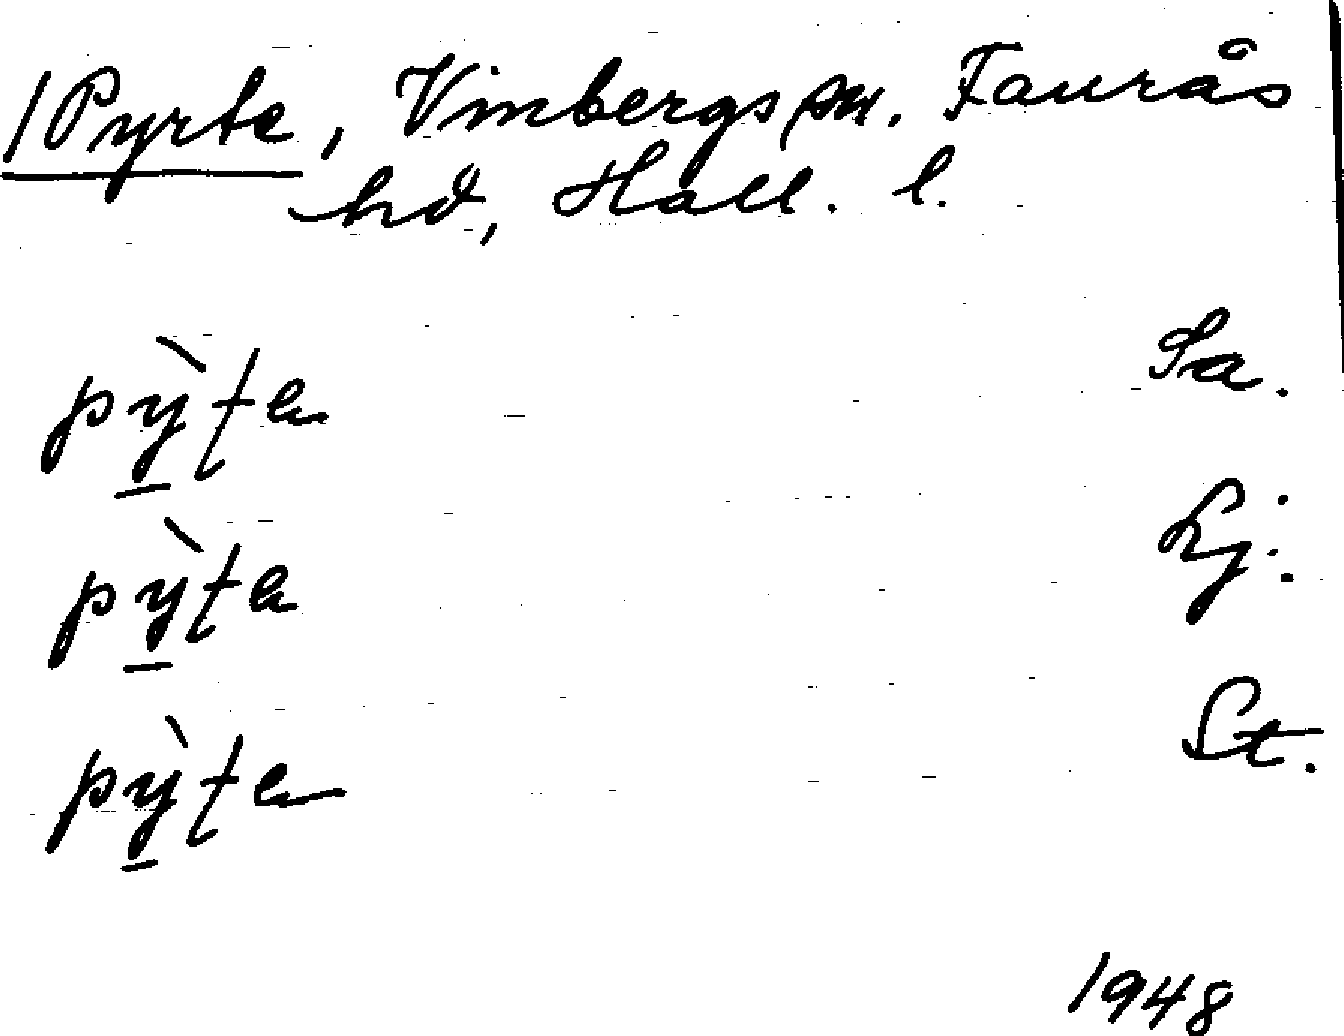 /Pyrte, Vinbergs sn. Faurås
hd, Hall. l.
pỳ̠ʈɐ Sa.
pỳ̠ʈɐ Lj:.
pỳ̠ʈɐ St.
1948